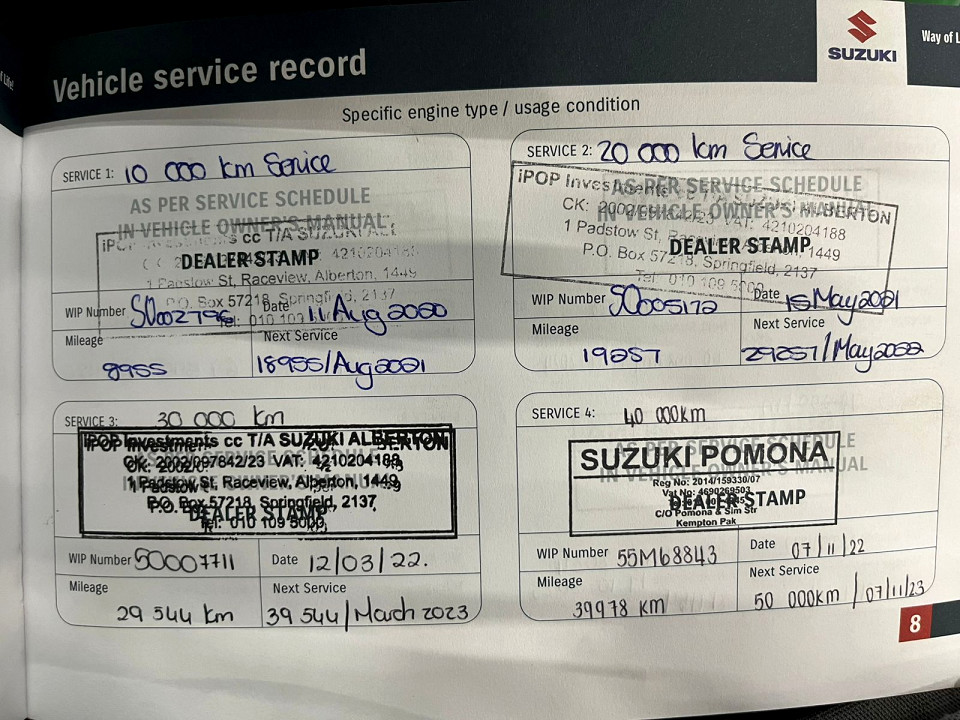 Vehicle service record
SUZUKI
Way of L
Specific engine type / usage condition
SERVICE 1: 10 000 km Service
AS PER SERVICE SCHEDULE
IN VEHICLE OWNER'S MANUAL
cc T/A SUZUKI
DEALER STAMP
St, Raceview, Alberton, 1449
P.O. Box 57218, Springfield, 2137
Tel: 010 109
WIP Number
Date 11 Aug 2020
Mileage 8955
Next Service 18955/Aug2021
SERVICE 2: 20 000 km Service
AS PER SERVICE SCHEDULE
IN VEHICLE OWNER'S MANUAL
iPOP Investments
ALBERTON
VAT: 4210204188
1 Padstow St, Raceview, Alberton, 1449
DEALER STAMP
P.O. Box 57218, Springfield, 2137
Tel 010 109 5000
WIP Number SO005172
Date 15 May 2021
Mileage 19257
Next Service 29257/May2022
SERVICE 3: 30 000 km
iPOP Investments cc T/A SUZUKI ALBERTON
CK: 2002/097842/23 VAT: 4210204188
1 Padstow St, Raceview, Alberton, 1449
P.O. Box 57218, Springfield, 2137
DEALER STAMP
Tel: 010 109 5000
WIP Number SO007711
Date 12/03/22.
Mileage 29 544 km
Next Service 39 544/March 2023
SERVICE 4: 40 000km
AS PER SERVICE SCHEDULE
SUZUKI POMONA
IN VEHICLE OWNER'S MANUAL
Reg No: 2014/159330/07
Vat No: 4690269503
DEALER STAMP
C/O Pomona & Sim Str
Kempton Pak
WIP Number 55M68843
Date 07/11/22
Mileage 39978 KM
Next Service 50 000km / 07/11/23
8